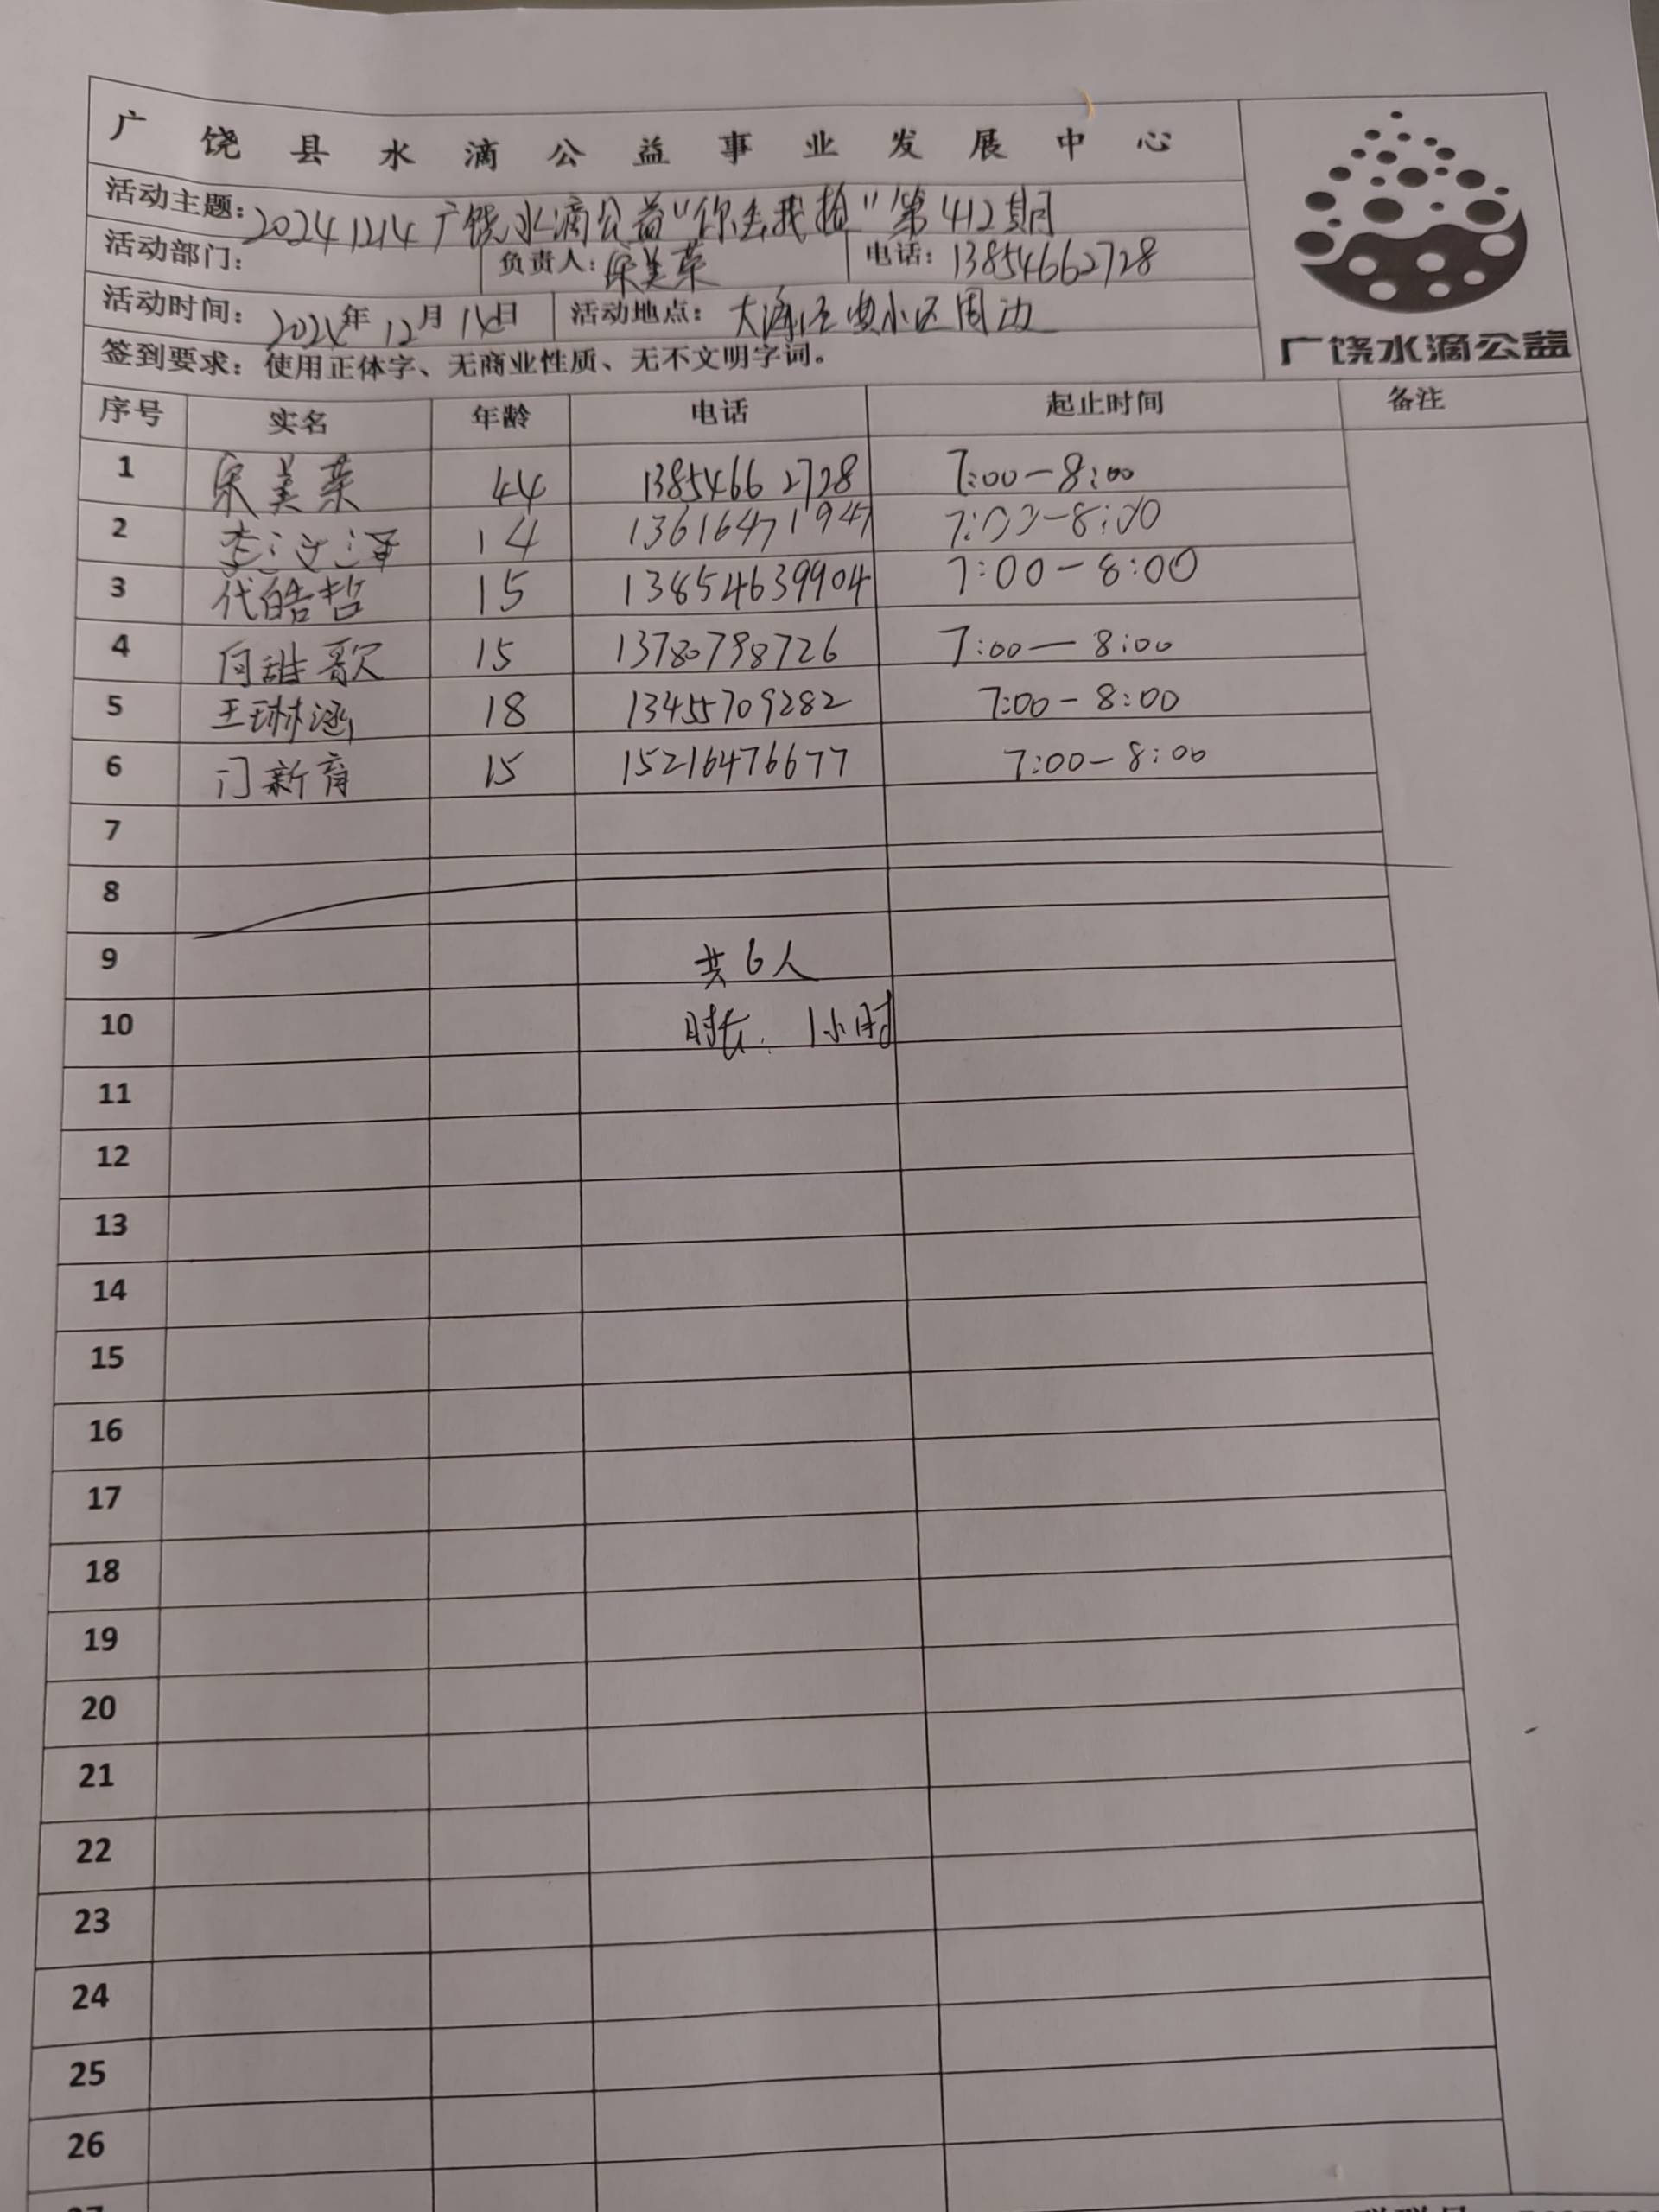 广饶县水滴公益事业发展中心
活动主题：20241214广饶水滴公益"你丢我捡"第412期
活动部门： 负责人：宋美荣 电话：13854662728
活动时间：2024年12月14日 活动地点：大海经典小区周边
签到要求：使用正体字、无商业性质、无不文明字词。
广饶水滴公益
序号 实名 年龄 电话 起止时间 备注
1 宋美荣 44 13854662728 7:00-8:00
2 李汶泽 14 13616471947 7:00-8:00
3 代皓哲 15 13854639904 7:00-8:00
4 闫甜歌 15 13780798726 7:00-8:00
5 王琳涵 18 13455709282 7:00-8:00
6 门新育 15 15216476677 7:00-8:00
7
8
9 共6人
10 时长：1小时
11
12
13
14
15
16
17
18
19
20
21
22
23
24
25
26